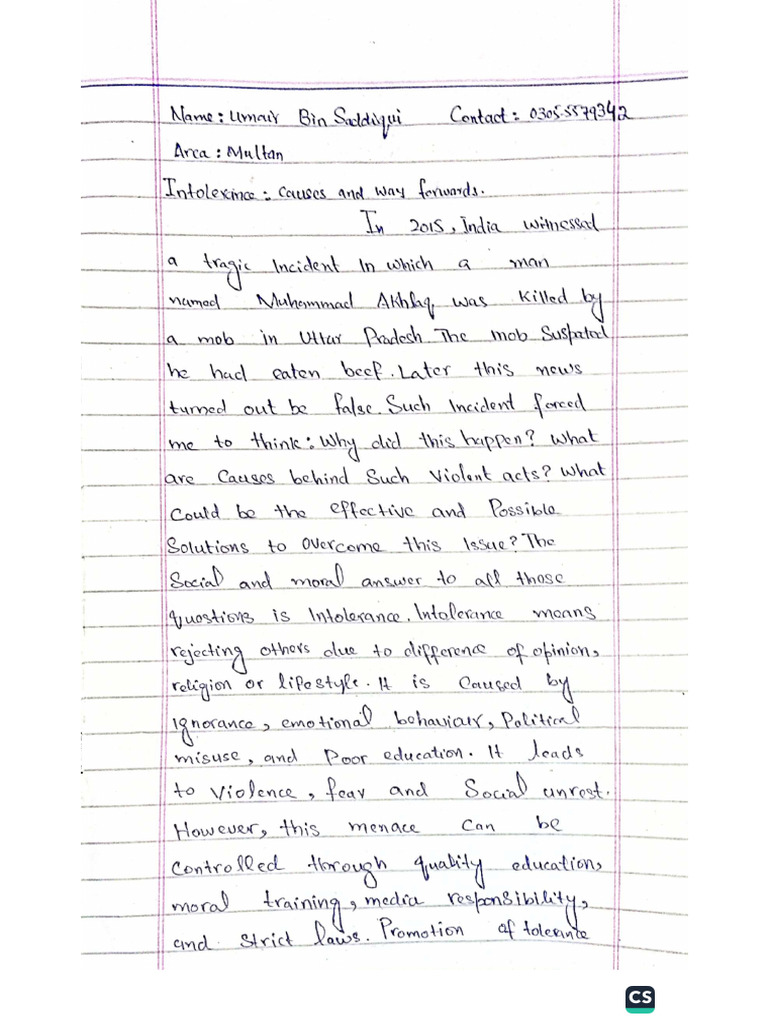 Name: Umair Bin Saddiqui Contact: 0305-5579342
Area: Multan
Intolerince: causes and way forwards.
In 2015, India witnessed
a tragic incident In which a man
named Muhammad Akhlaq was killed by
a mob in Uttar Pradesh. The mob Suspated
he had eaten beef. Later this news
turned out be false. Such Incident forced
me to think: Why did this happen? What
are causes behind Such violent acts? What
Could be the effective and Possible
Solutions to overcome this Issue? The
Social and moral answer to all those
questions is Intolerance. Intolerance means
rejecting others due to difference of opinion,
religion or lifestyle. It is caused by
ignorance, emotional behaviour, Political
misuse, and Poor education. It leads
to violence, fear and Social unrest.
However, this menace can be
controlled through quality education,
moral training, media responsibility,
and strict laws. Promotion of tolerance
CS